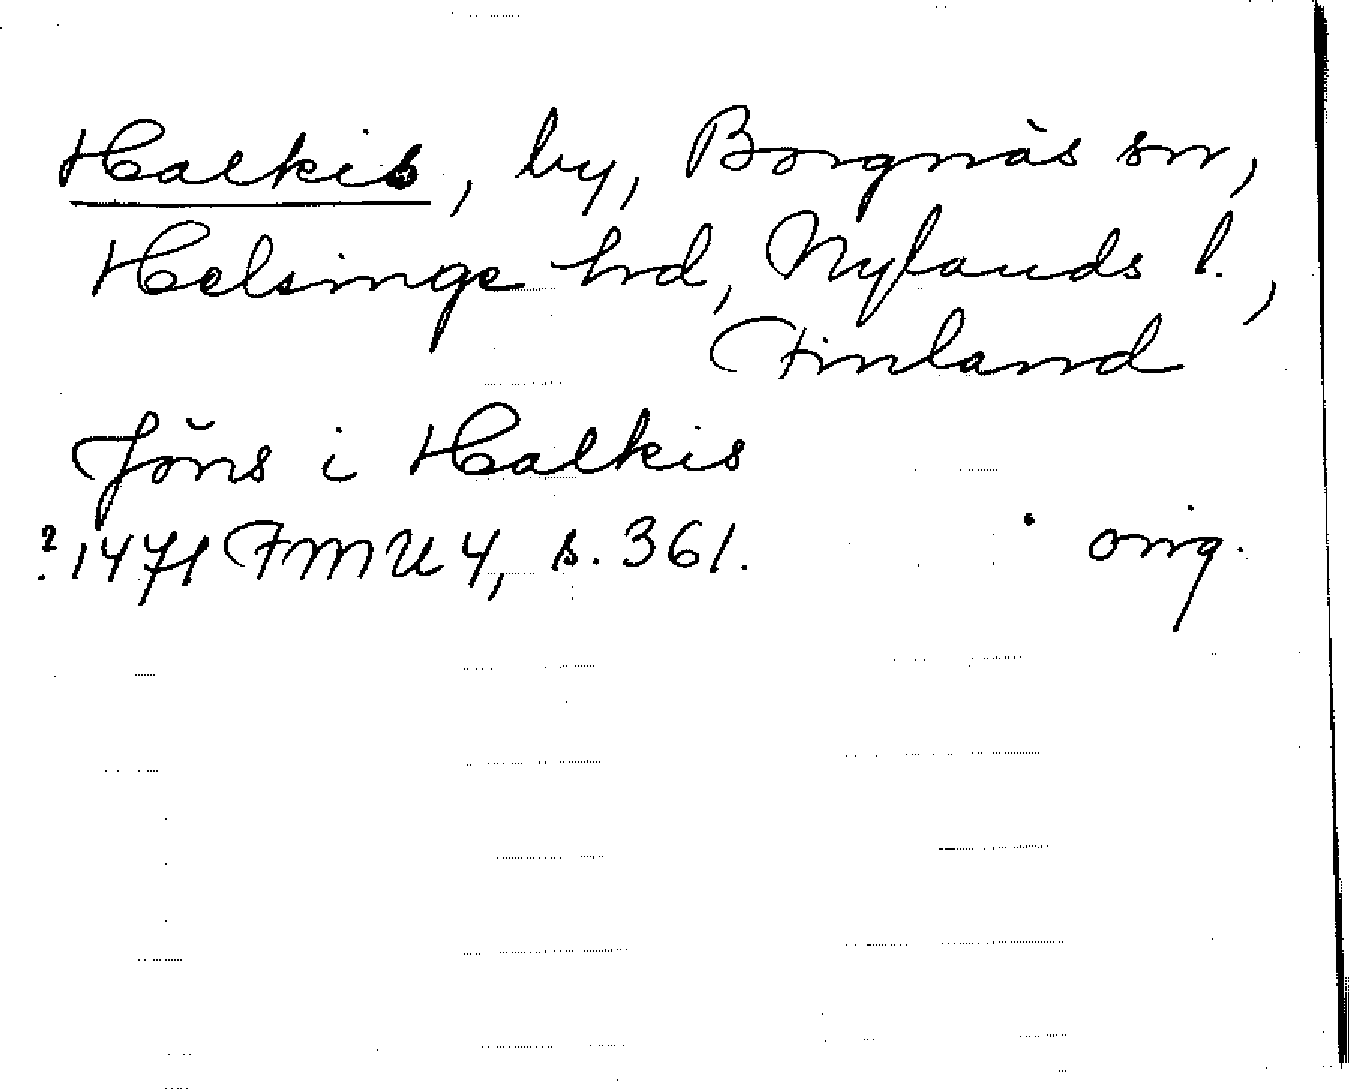 Halkis, by, Borgnäs sn,
Helsinge hd, Nylands l.,
Finland
Jöns i Halkis
? 1471 FMU 4, s. 361. orig.